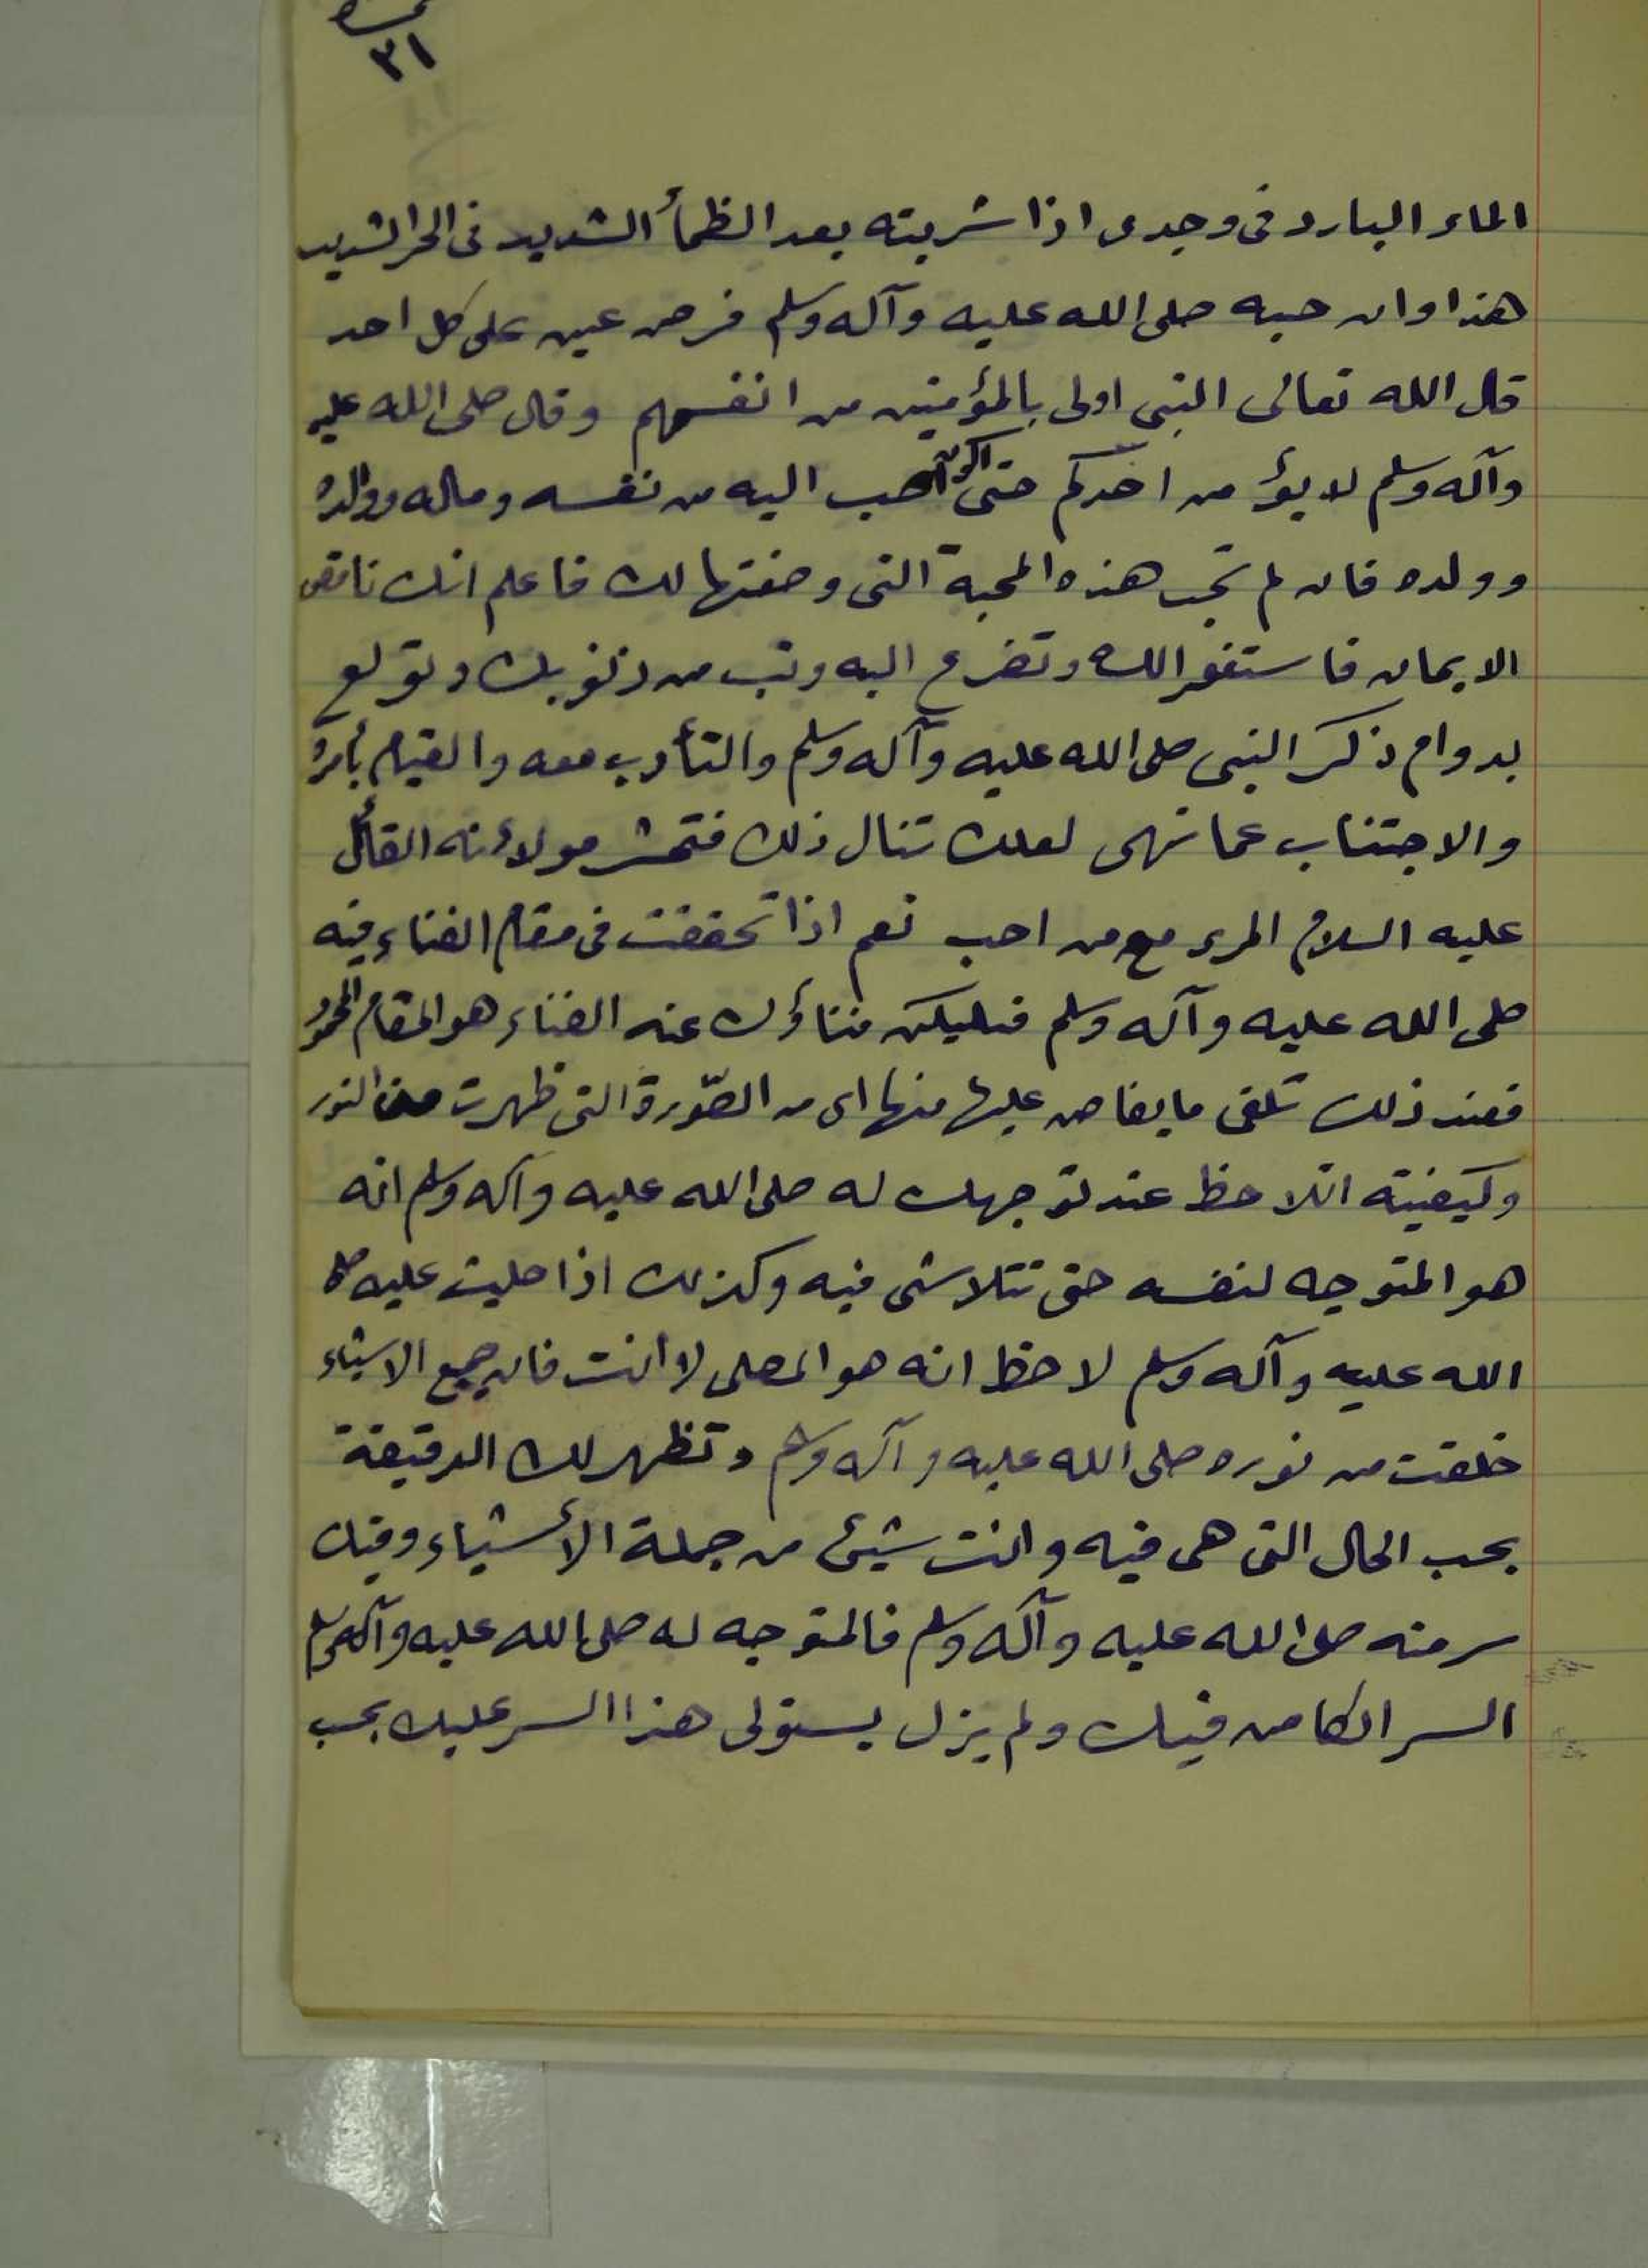 ٣١
الماء البارد فى وجدى اذا شربته بعد الظمأ الشديد فى الحر الشديد
هذا وان حبه صلى الله عليه وآله وسلم فرض عين على كل احد
قال الله تعالى النبى اولى بالمؤمنين من انفسهم وقال صلى الله عليه
وآله وسلم لا يؤمن احدكم حتى اكون احب اليه من نفسه وماله ووالده
وولده فان لم تجب هذه المحبة التى وصفتها لك فاعلم انك ناقص
الايمان فاستغفر الله وتضرع اليه وتب من ذنوبك وتولع
بدوام ذكر النبى صلى الله عليه وآله وسلم والتأدب معه والقيام بأمره
والاجتناب عما نهى لعلك تنال ذلك فتحشر مو لأنه القائل
عليه السلام المرء مع من احب نعم اذا تحققت فى مقام الفناء فيه
صلى الله عليه وآله وسلم فليكن فناؤك عنه الفناء هو المقام المحمود
فعند ذلك تلقى ما يفاض عليها منها اى من الصّورة التى ظهرت من النور
وكيفيته ان تلاحظ عند توجهك له صلى الله عليه وآله وسلم انه
هو المتوجه لنفسه حتى تتلاشى فيه وكذلك اذا صليت عليه صلى
الله عليه وآله وسلم لاحظ انه هو المصلى لا أنت فان جميع الاشياء
خلقت من نوره صلى الله عليه وآله وسلم وتظهر لك الدقيقة
بحب الحال التى هى فيه وانت شيئ من جملة الأشياء وفيك
سر منه صلى الله عليه وآله وسلم فالمتوجه له صلى الله عليه وآله وسلم
السر الكامن فيك ولم يزل يستولى هذا السر عليك بحب